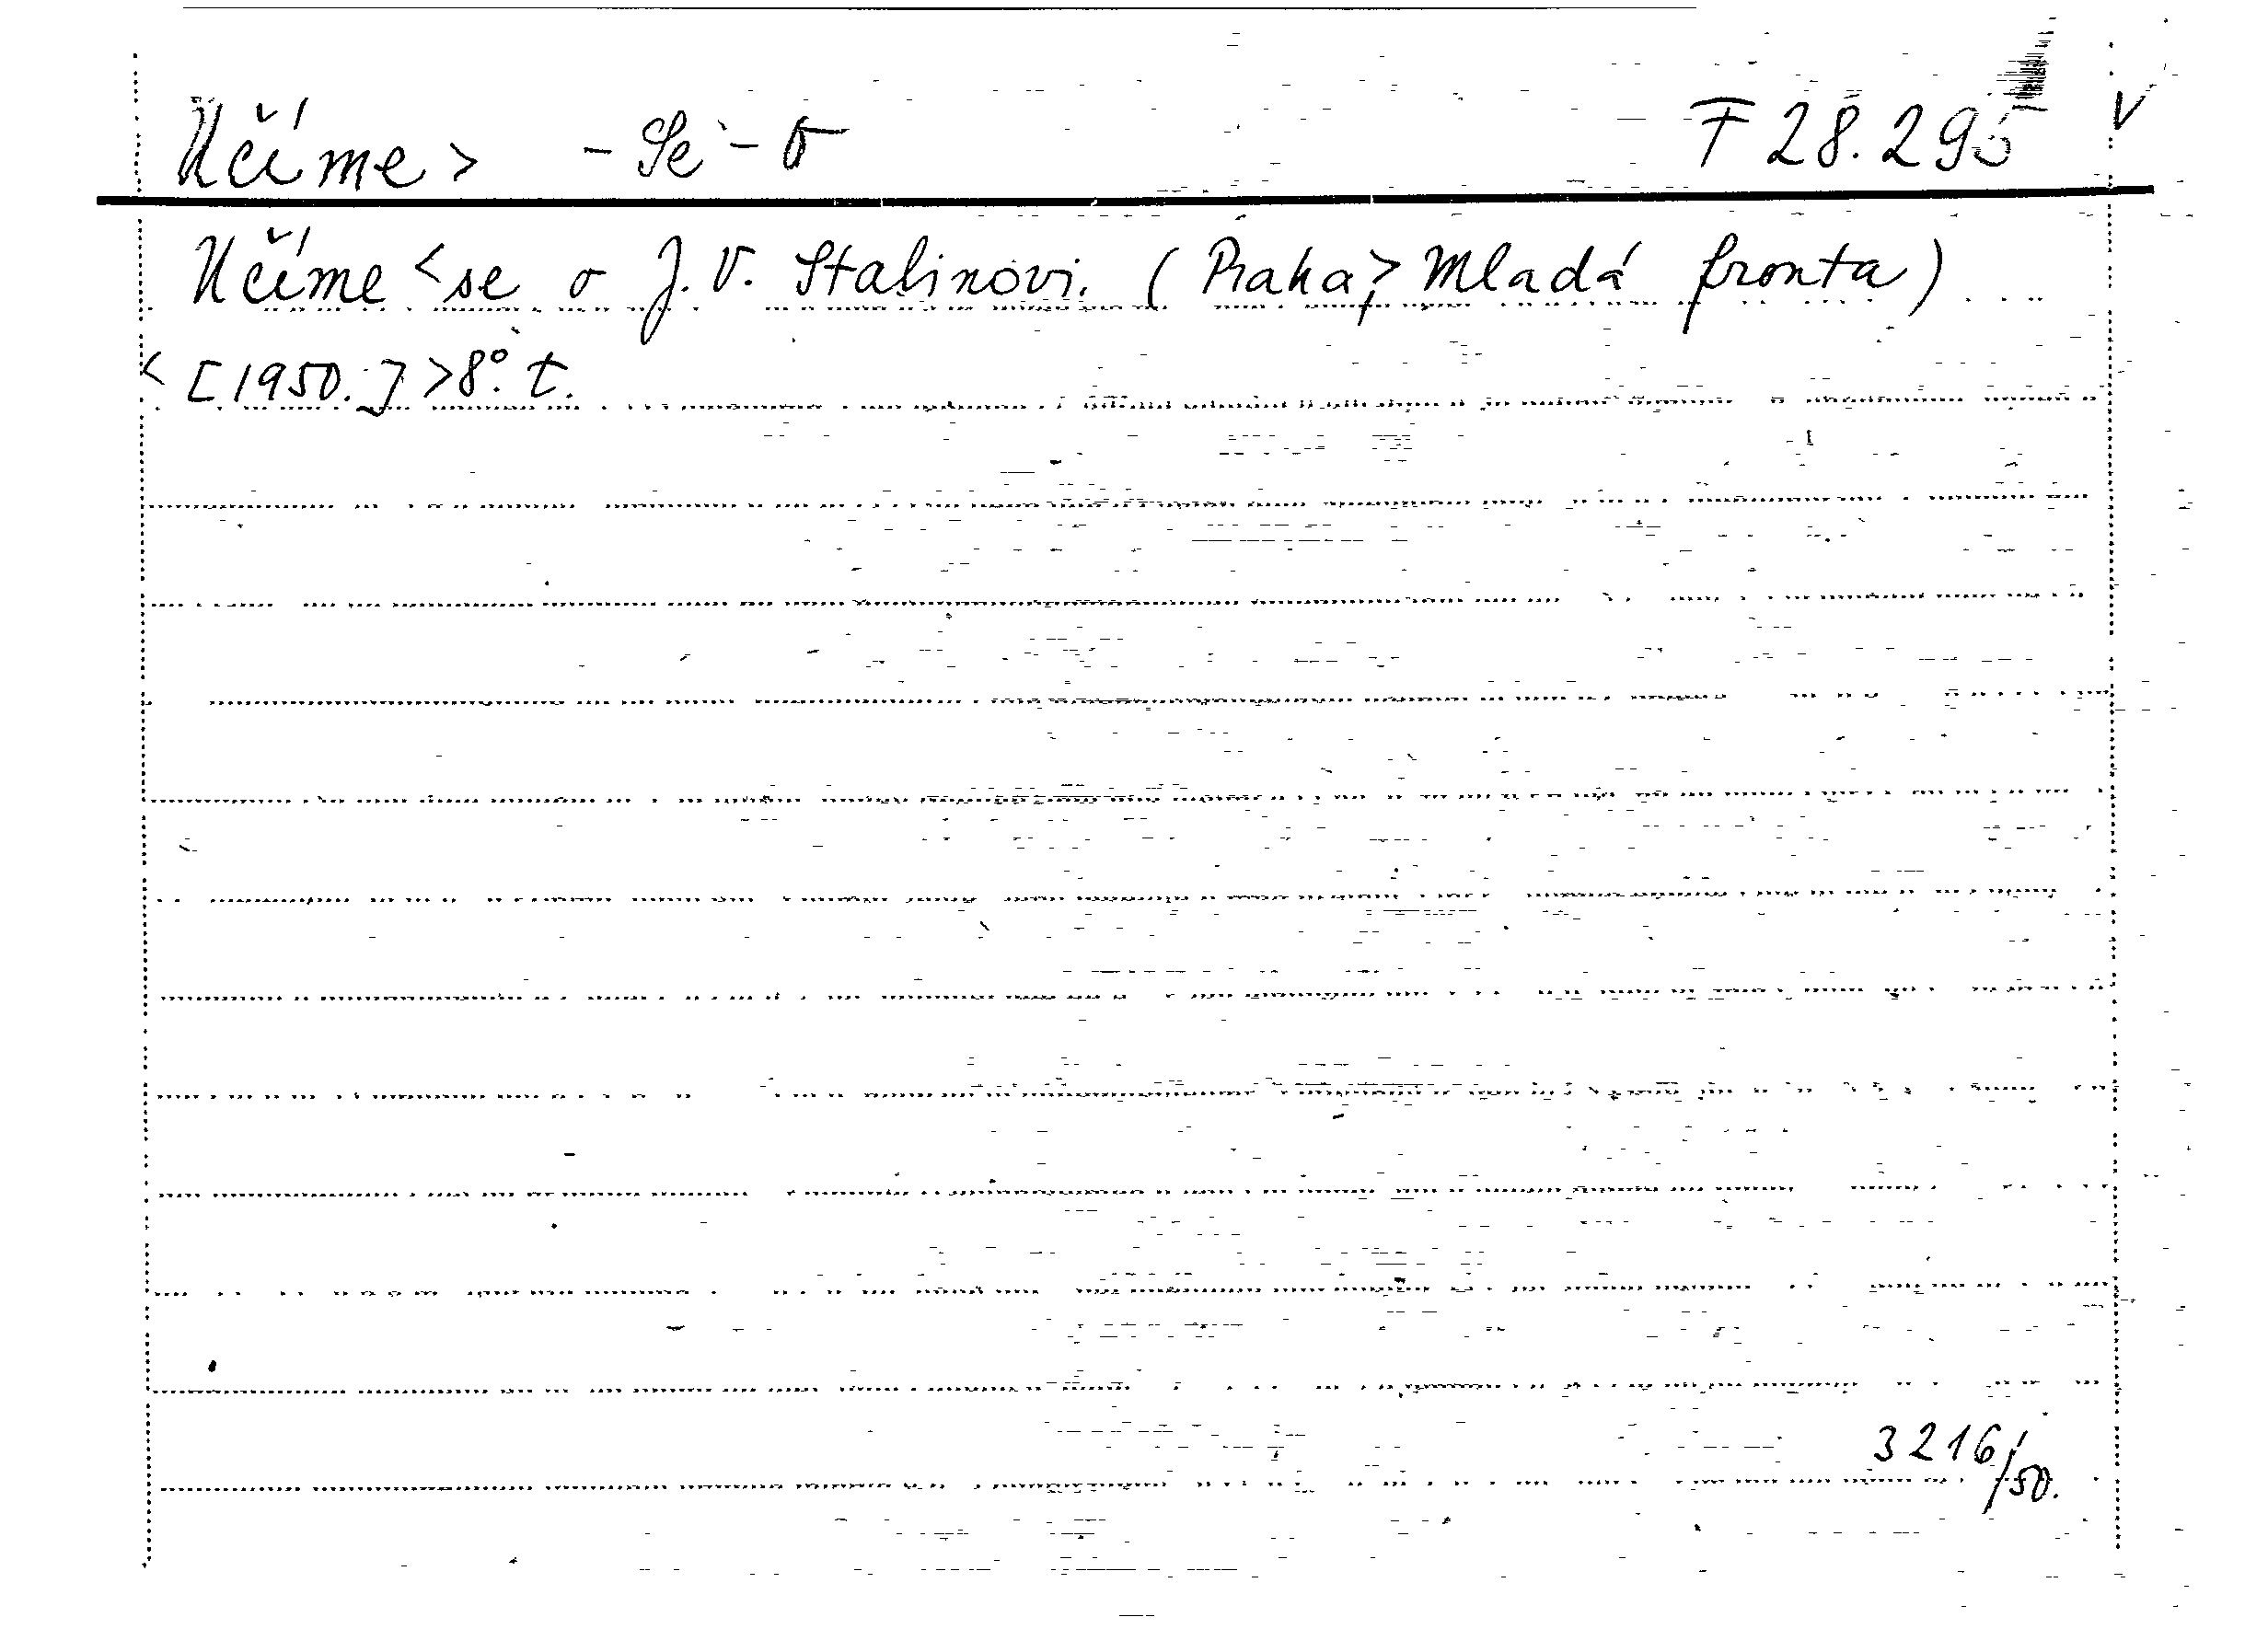 Učíme> -Se-o F 28.295 V
Učíme <se o J. V. Stalinovi. (Praha> Mladá fronta)
< [1950.] >8°. t.
3216/50.